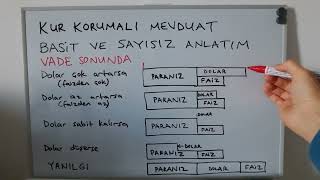 KUR KORUMALI MEVDUAT
BASİT VE SAYISIZ ANLATIM
VADE SONUNDA
Dolar çok artarsa
(faizden çok)
PARANIZ
DOLAR
FAİZ
Dolar az artarsa
(faizden az)
PARANIZ
DOLAR
FAİZ
Dolar sabit kalırsa
PARANIZ
DOLAR
FAİZ
Dolar düşerse
PARANIZ
DOLAR
FAİZ
YANILGI
PARANIZ
DOLAR
FAİZ